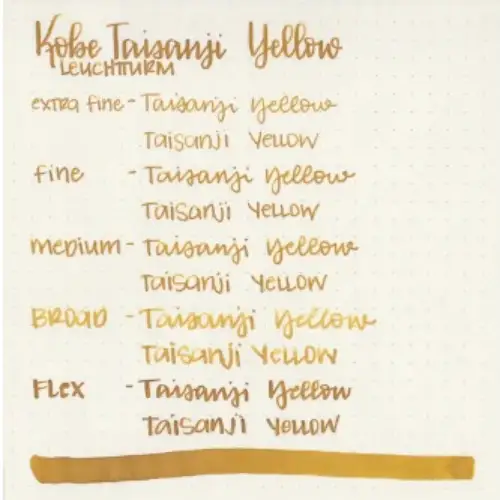 Kobe Taisanji Yellow
LEUCHTTURM
extra fine - Taisanji Yellow
Taisanji Yellow
fine - Taisanji Yellow
Taisanji Yellow
medium - Taisanji Yellow
Taisanji Yellow
BROAD - Taisanji Yellow
Taisanji Yellow
FLEX - Taisanji Yellow
Taisanji Yellow